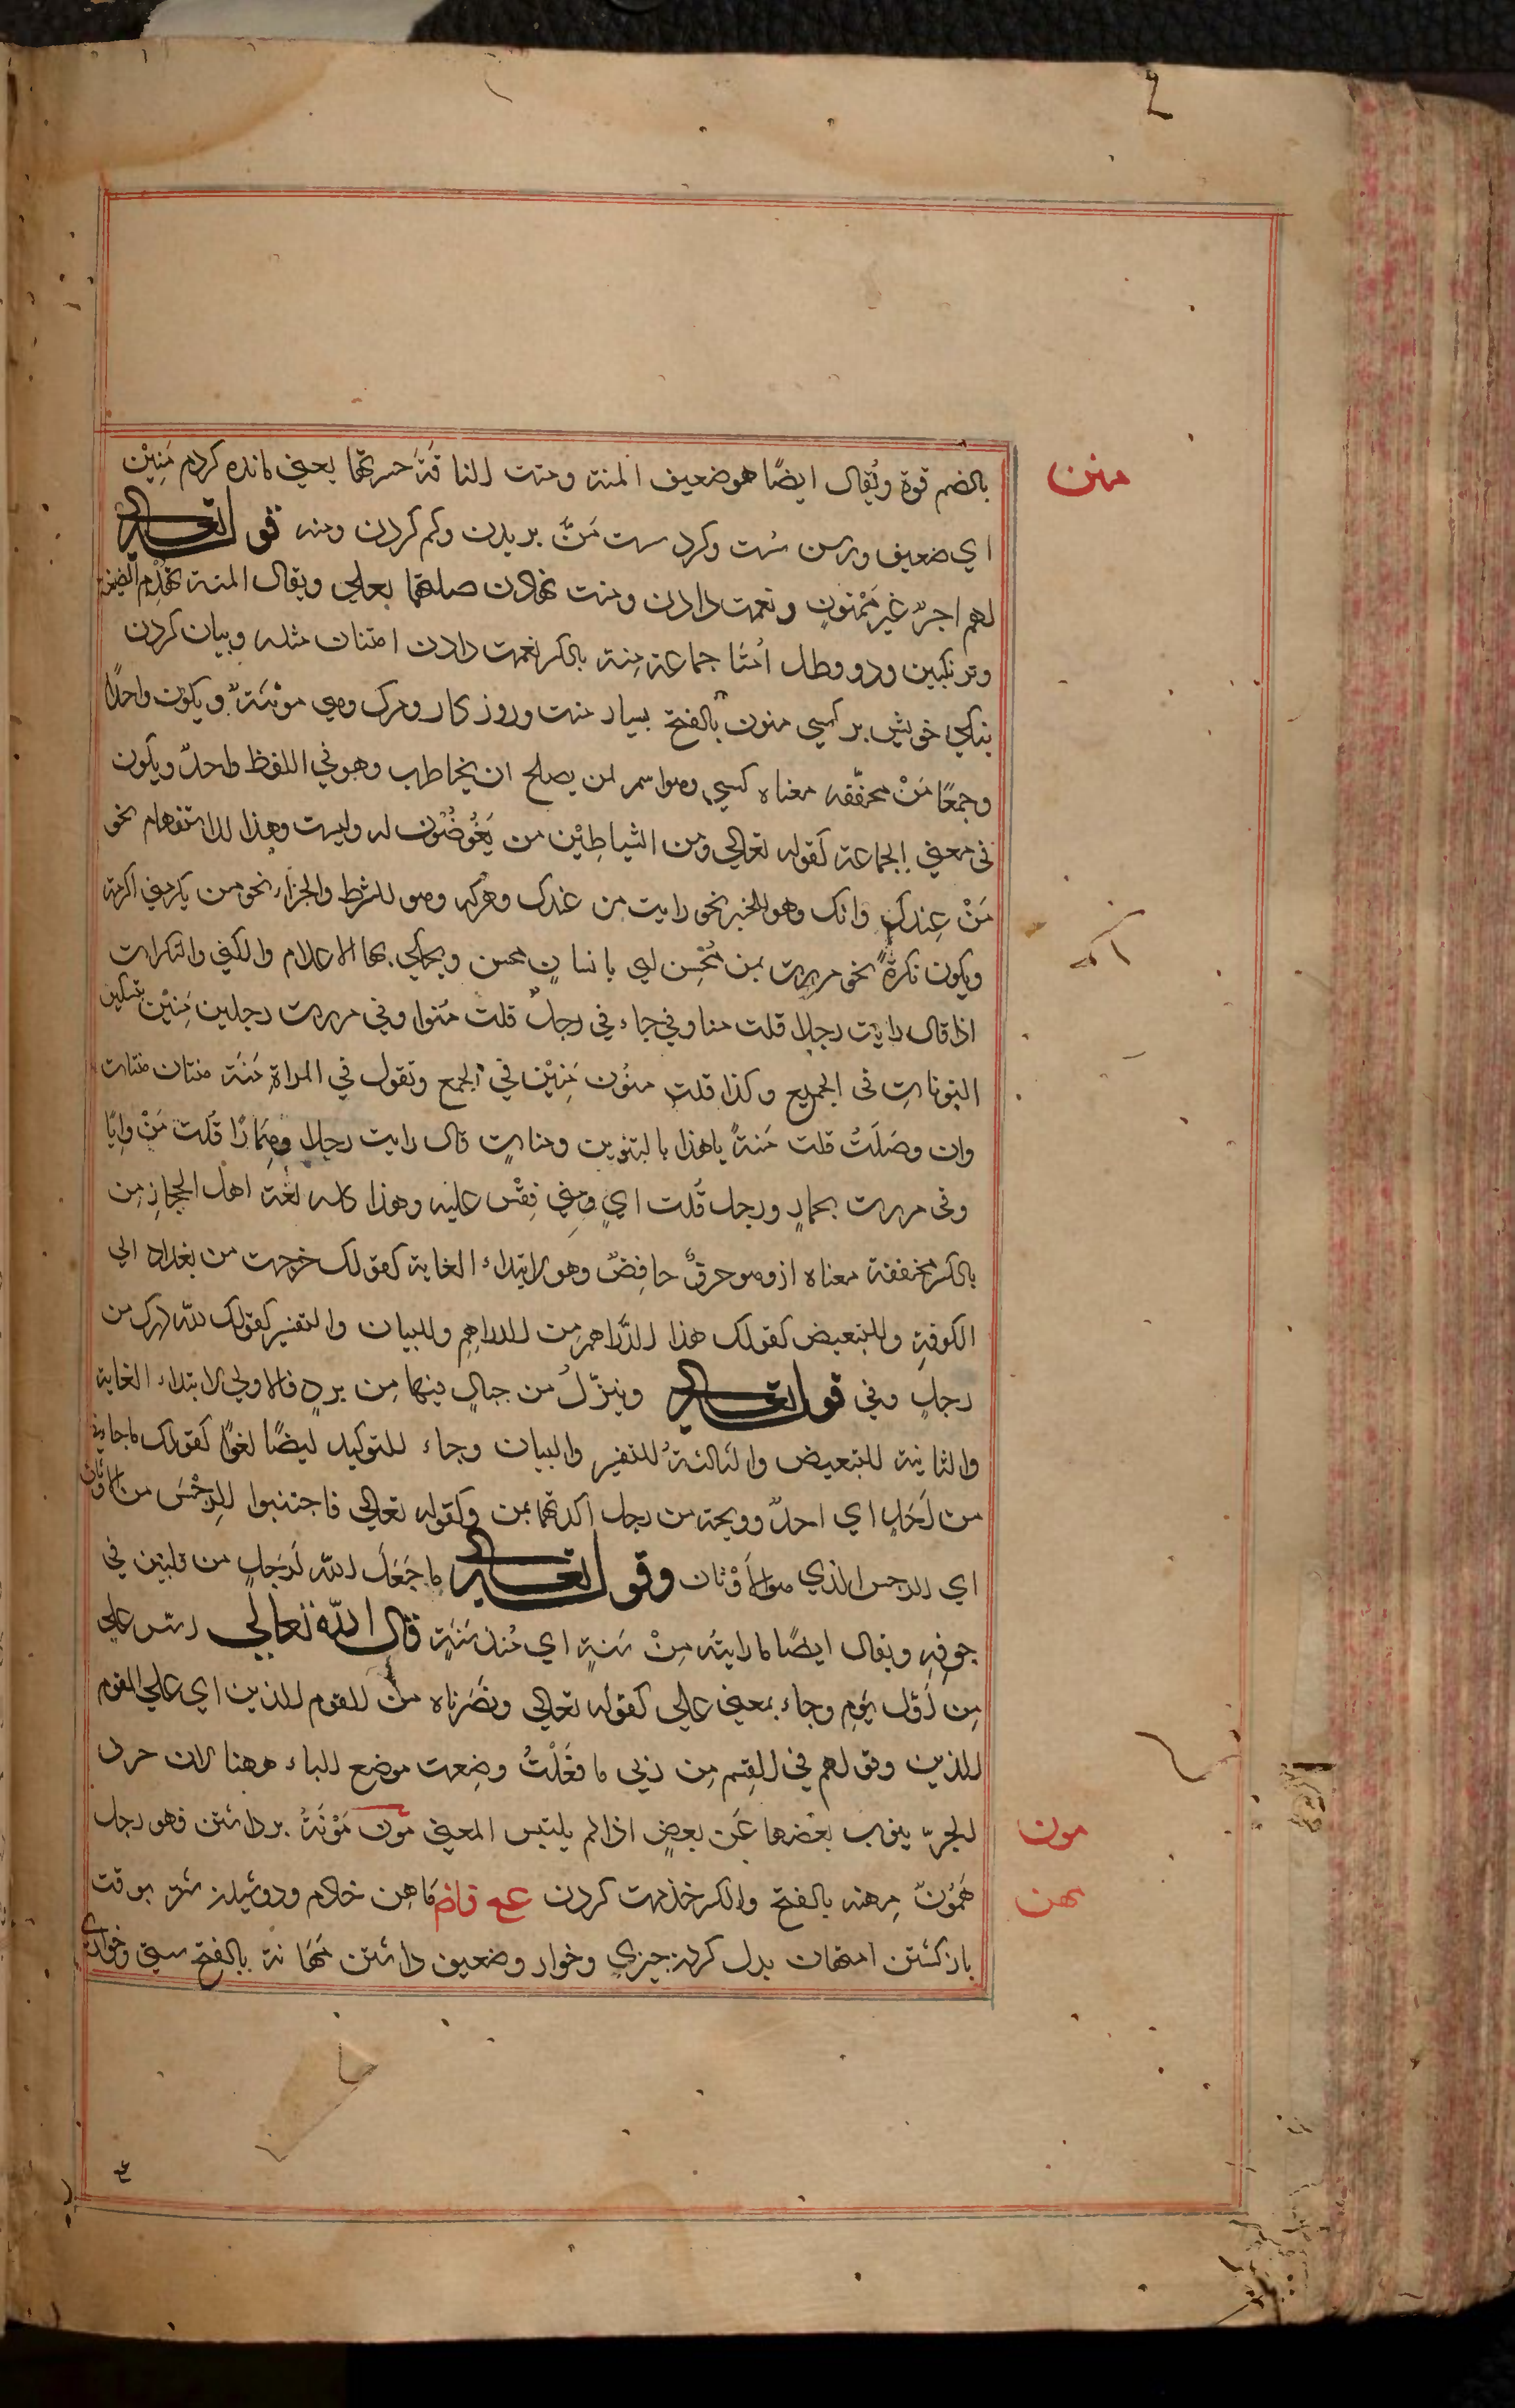 منن
بالضم قوة ويُقال ايضًا هو ضعيف المنة ومننت الناقَةَ حسرتها يعني مانده كردم مَنِيْن
اي ضعيف ورسن سُست وكرد سست مَنٌّ بريدن وكم كردن ومنه قوله تعالي
لهم اجرٌ غير مَمْنونٍ ونعمت دادن ومنت نهادن صلتهما بعلي ويقال المنة تهدم الصنيعة
وترنكبين ودو رطل امنا جماعة مِنة بالكسر نعمت دادن امتنان مثله وبيان كردن
نيكي خويش بر كسي منون بالفتح بسيار منت وروزكار ومرك وهي مونثةٌ ويكون واحدًا
وجمعًا مَنْ مخففه معناه كسي وهو اسم لمن يصلح ان يخاطب وهو في اللفظ واحدٌ ويكون
في معني الجماعة كقوله تعالي ومن الشياطِيْن من يَغُوصُون له وليست وهذا للاستفهام نحو
مَنْ عِندك وانك وهو للخبر نحو رايت من عندك وهركه وهو للشرط والجزاء نحو من يكرمني اكرمته
ويكون نكرةً نحو مررت بمن مُحْسِن اي بانسانٍ محسن ويحكي بها الاعلام والكني والنكرات
اذا قال رايت رجلا قلت منا وفي جاءني رجلٌ قلت مَنوا وفي مررت رجلين مَنِيْن بتسكين
النونات في الجميع وكذا قلت منُون مَنِيْن في الجمع وتقول في المراة مَنَة منتان منتات
وان وصَلَتْ قلت مَنةً ياهذا بالتنوين ومناتٍ قال رايت رجلا وحِمَارًا قُلت مَنْ وايًا
وفي مررت بحمارٍ ورجل قُلت ايٍ ومني فِقْس عليه وهذا كله لغة اهل الحجاز مِن
بالكسر مخففة معناه از وهو حرفٌ خافِضٌ وهو لابتداء الغاية كقولك خرجت من بغداد الي
الكوفةِ وللتبعيض كقولك هذا الدَّراهم مِن الدراهِمِ وللبيان والتفسير كقولك لله درك من
رجلٍ وفي قوله تعالي وينزّلُ من جبالٍ فيها مِن بردٍ فالاولي لابتداء الغاية
والثانية للتبعيض والثالثةُ للتفسير والبيان وجاء للتوكيد ايضًا لغوًا كقولك ماجاءني
من اَحَدٍ اي احدٌ وويحه من رجل اكدتهما بمن وكقوله تعالي فاجتنبوا الرِجْسَ من الاوثان
اي الرجس الذي هو الاَوْثان وقوله تعالي ما جَعَلَ الله لرَجلٍ من قلبين في
جوفِهِ ويقال ايضًا ما رايتُه مِنْ سَنةٍ اي مُنذ سَنَةٍ قال الله تعالي اسّس علي
مِن اَوّل يَومٍ وجاء بمعني علي كقوله تعالي ونصَرناه من القوم الذين اي علي القوم
الذين وقولهم في القِسم مِن ربي ما فعَلْتُ وضِعت موضع الباء ههنا لان حرف
مون
الجرّ ينوب بعضها عَن بعضٍ اذا لم يلتبس المعني مَون مَوْنَةُ برداشتن فهو رجل
مهن
مَمُونٌ مِهنه بالفتح والكسر خذمت كردن مَاهِن خادم ودوشيدن شتر بوقت
بازكشتن امتهان بدل كردن چيزي وخوار وضعيف داشتن مَهَانة بالفتح سستي وخواري